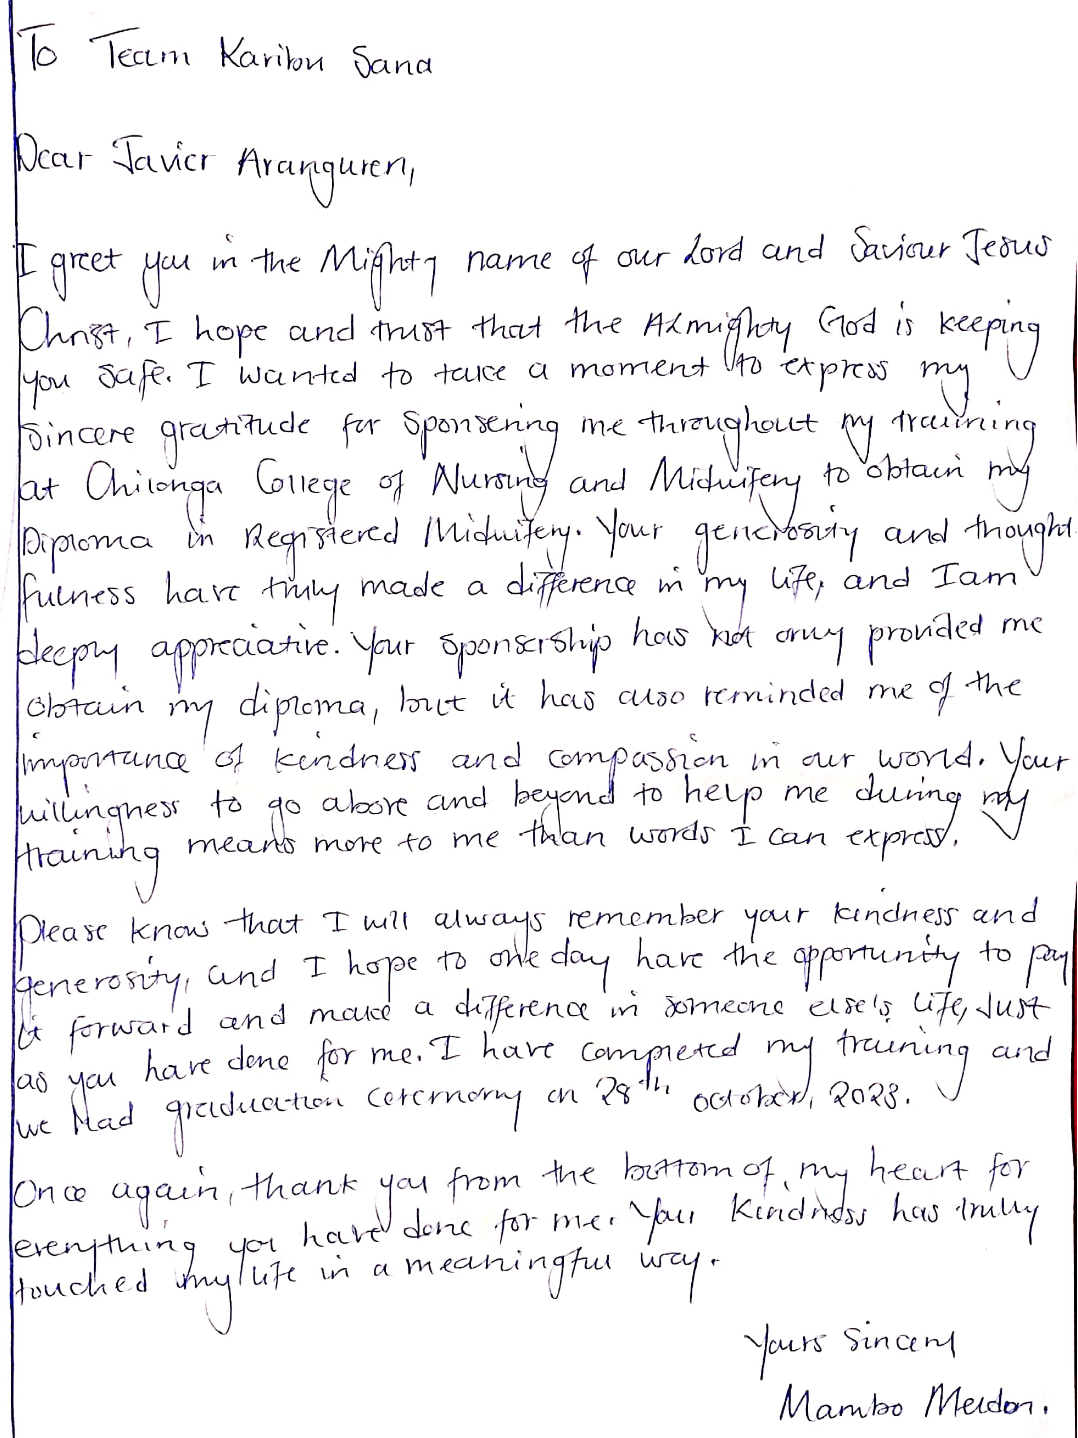 To Team Karibu Sana
Dear Javier Aranguren,
I greet you in the Mighty name of our Lord and Saviour Jesus
Christ, I hope and trust that the Almighty God is keeping
you safe. I wanted to take a moment to express my
sincere gratitude for sponsering me throughout my training
at Chilonga College of Nursing and Midwifery to obtain my
Diploma in Registered Midwifery. Your generosity and thought
fulness have truly made a difference in my life, and I am
deeply appreciative. Your sponsership has not only provided me
obtain my diploma, but it has also reminded me of the
importance of kindness and compassion in our world. Your
willingness to go above and beyond to help me during my
training means more to me than words I can express.
Please know that I will always remember your kindness and
generosity, and I hope to one day have the opportunity to pay
it forward and make a difference in someone else's life, Just
as you have done for me. I have completed my training and
we had graduation ceremony on 28th october, 2023.
Once again, thank you from the bottom of my heart for
everything you have done for me. Your kindness has truly
touched my life in a meaningful way.
Yours Sincerly
Mambo Meldon.